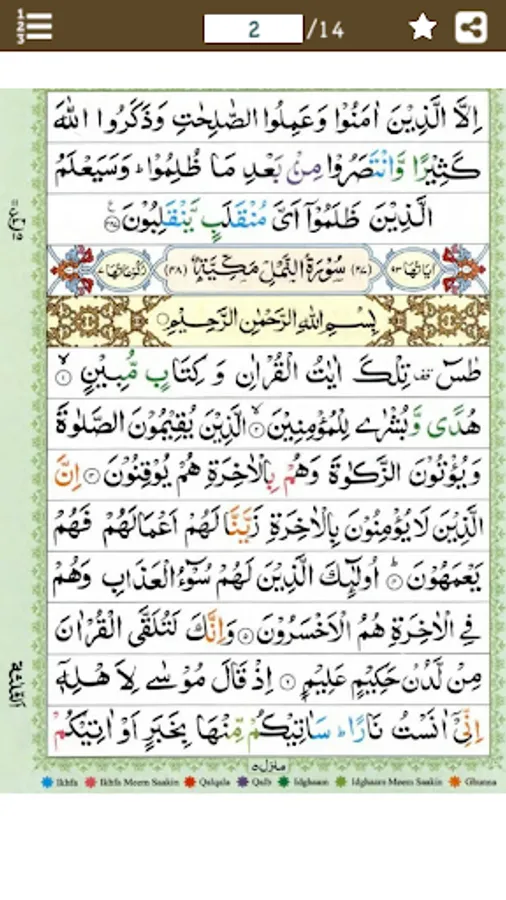 1 2 3
2 /14
اِلَّا الَّذِيْنَ اٰمَنُوْا وَعَمِلُوا الصّٰلِحٰتِ وَذَكَرُوا اللّٰهَ
كَثِيْرًا وَّانْتَصَرُوْا مِنْۢ بَعْدِ مَا ظُلِمُوْا ؕ وَسَيَعْلَمُ
الَّذِيْنَ ظَلَمُوْۤا اَىَّ مُنْقَلَبٍ يَّنْقَلِبُوْنَ ۟
اٰيَاتُهَا ٩٣ (٢٧) سُوْرَةُ النَّمْلِ مَكِّيَّةٌ (٤٨) رُكُوْعَاتُهَا ٧
بِسْمِ اللّٰهِ الرَّحْمٰنِ الرَّحِيْمِ
طٰسٓ تِلْكَ اٰيٰتُ الْقُرْاٰنِ وَ كِتَابٍ مُّبِيْنٍ ۙ ۱
هُدًى وَّبُشْرٰى لِلْمُؤْمِنِيْنَ ۙ ۲ الَّذِيْنَ يُقِيْمُوْنَ الصَّلٰوةَ
وَ يُؤْتُوْنَ الزَّكٰوةَ وَهُمْ بِالْاٰخِرَةِ هُمْ يُوْقِنُوْنَ ۳ اِنَّ
الَّذِيْنَ لَا يُؤْمِنُوْنَ بِالْاٰخِرَةِ زَيَّنَّا لَهُمْ اَعْمَالَهُمْ فَهُمْ
يَعْمَهُوْنَ ؕ ۴ اُولٰٓئِكَ الَّذِيْنَ لَهُمْ سُوْٓءُ الْعَذَابِ وَهُمْ
فِى الْاٰخِرَةِ هُمُ الْاَخْسَرُوْنَ ۵ وَاِنَّكَ لَتُلَقَّى الْقُرْاٰنَ
مِنْ لَّدُنْ حَكِيْمٍ عَلِيْمٍ ۶ اِذْ قَالَ مُوْسٰى لِاَهْلِهٖۤ
اِنِّىْۤ اٰنَسْتُ نَارًا ؕ سَاٰتِيْكُمْ مِّنْهَا بِخَبَرٍ اَوْ اٰتِيْكُمْ
منزل ٥
Ikhfa Ikhfa Meem Saakin Qalqala Qalb Idghaam Idghaam Meem Saakin Ghunna